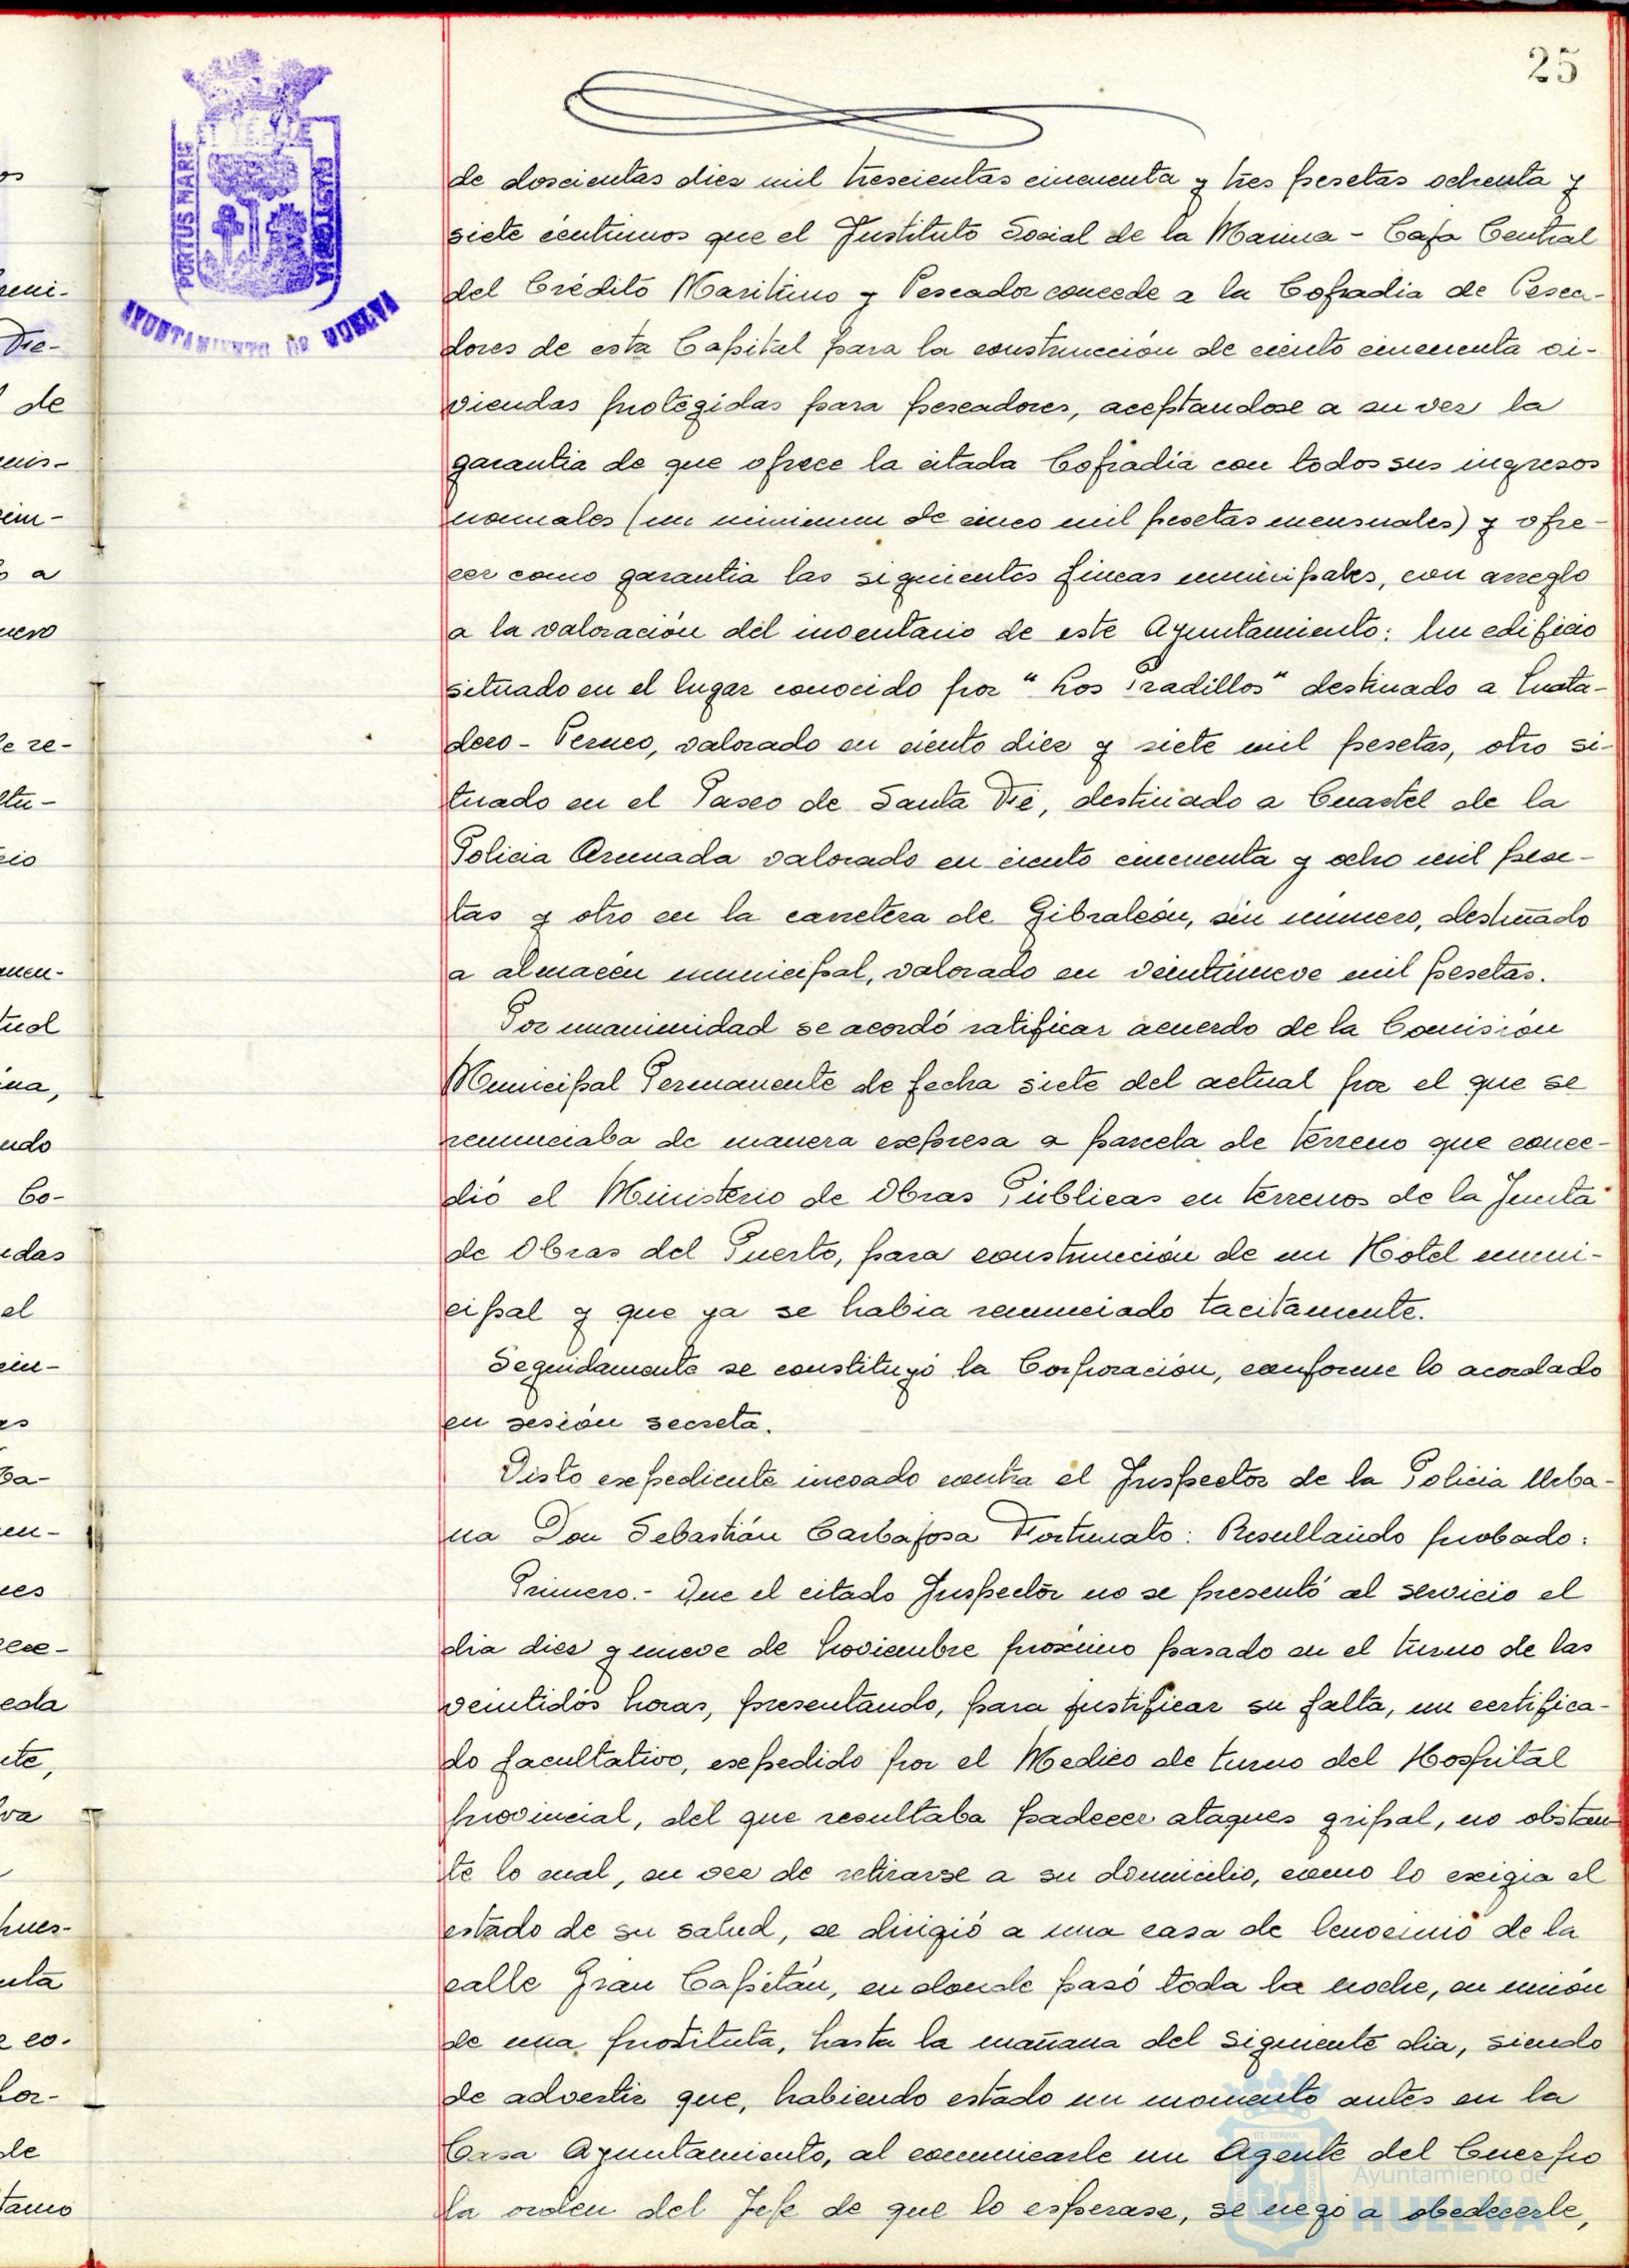 25
PORTUS MARIS
ET TERRAE
CUSTODIA
AYUNTAMIENTO DE HUELVA
de doscientas diez mil trescientas cincuenta y tres pesetas ochenta y
siete céntimos que el Instituto Social de la Marina - Caja Central
del Crédito Maritimo y Pescador concede a la Cofradia de Pesca-
dores de esta Capital para la construcción de ciento cincuenta vi-
viendas protegidas para pescadores, aceptandose a su vez la
garantia de que ofrece la citada Cofradia con todos sus ingresos
normales (un minimun de cinco mil pesetas mensuales) y ofre-
cer como garantia las siguientes fincas municipales, con arreglo
a la valoración del inventario de este Ayuntamiento: Un edificio
situado en el lugar conocido por "Los Pradillos" destinado a
valorado en ciento diez y siete mil pesetas, otro si-
tuado en el Paseo de Santa Fé, destinado a Cuartel de la
Policia Armada valorado en ciento cincuenta y ocho mil pese-
tas y otro en la carretera de Gibraleón, sin número, destinado
a almacén municipal, valorado en veintinueve mil pesetas.
Por unanimidad se acordó ratificar acuerdo de la Comisión
Municipal Permanente de fecha siete del actual por el que se
renunciaba de manera expresa a parcela de terreno que conce-
dió el Ministerio de Obras Públicas en terrenos de la Junta
de Obras del Puerto, para construcción de un Hotel muni-
cipal y que ya se habia renunciado tacitamente.
Seguidamente se constituyó la Corporación, conforme lo acordado
en sesión secreta.
Visto expediente incoado contra el Inspector de la Policia Urba-
na Don Sebastián Carbajosa Fortunato: Resultando probado:
Primero.- Que el citado Inspector no se presentó al servicio el
dia diez y nueve de Noviembre proximo pasado en el turno de las
veintidós horas, presentando, para justificar su falta, un certifica-
do facultativo, expedido por el Medico de turno del Hospital
provincial, del que resultaba padecer ataques gripal, no obstan-
te lo cual, en vez de retirarse a su domicilio, como lo exigia el
estado de su salud, se dirigió a una casa de lenocinio de la
calle Gran Capitán, en donde pasó toda la noche, en unión
de una prostituta, hasta la mañana del siguiente dia, siendo
de advertir que, habiendo estado un momento antes en la
Casa Ayuntamiento, al comunicarle un Agente del Cuerpo
la orden del Jefe de que lo esperase, se negó a obedecerle,
Ayuntamiento de
HUELVA